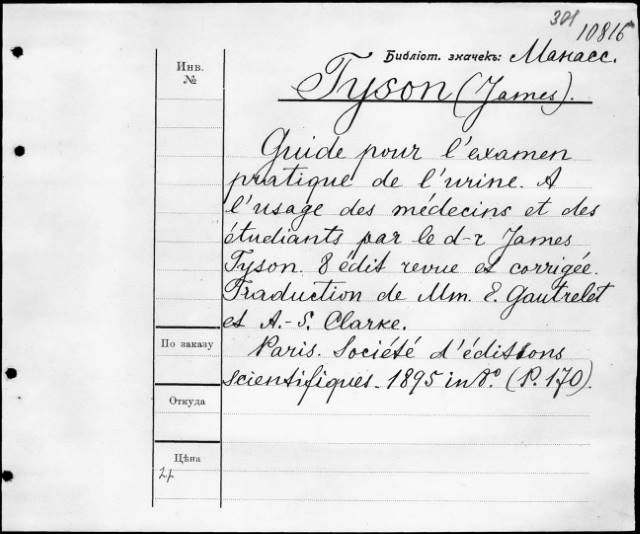 301 10816
Библіот. значекъ: Манасс.
Инв.
№
Tyson (James).
Guide pour l'examen
pratique de l'urine. A
l'usage des médecins et des
étudiants par le d-r James
Tyson. 8 édit revue et corrigée.
Traduction de Mm. E. Gautrelet
et A.-S. Clarke.
По заказу
Paris. Société d'éditions
scientifiques. 1895 in 8° (P. 170).
Откуда
Цѣна
2 р